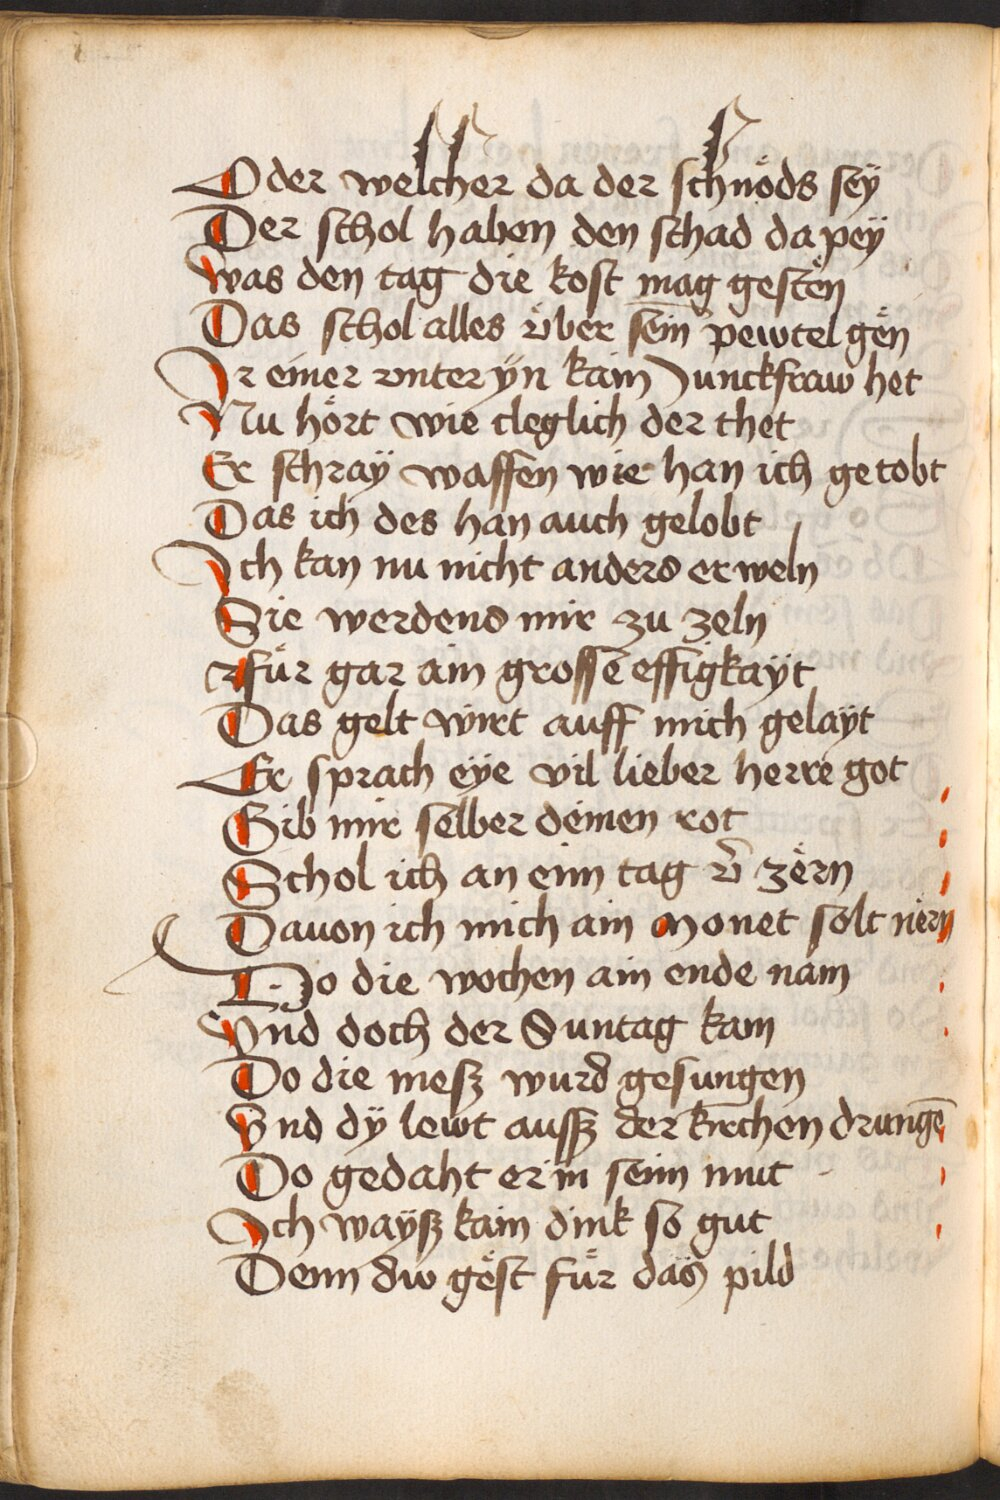 Oder welcher da der schnöds seÿ
Der schol haben den schad da peÿ
Was den tag die kost mag gesten
Das schol alles v̈ber sein pewtel gen
Ir einer vnter ÿn kain Junckfraw het
Nu hört wie cleglich der thet
Er schraÿ waffen wie han ich getobt
Das ich des han auch gelobt
Ich kan nu nicht anders erweln
Sie werdens mir zu zeln
für gar ain grosse effigkaÿt
Das gelt wirt auff mich gelaÿt
Er sprach eÿe vil lieber herre got
Gib mir selber deinen rot
Schol ich an einn tag v̄ zern
Dauon ich mich ain monet solt nern
Do die wochen ain ende nam
Vnd doch der Suntag kam
Do die mesz wurd gesungen
Vnd dÿ lewt aussz der kirchen drungē
Do gedaht er in seim mut
Ich waÿsz kain dink so gut
Denn dw gest für das pild